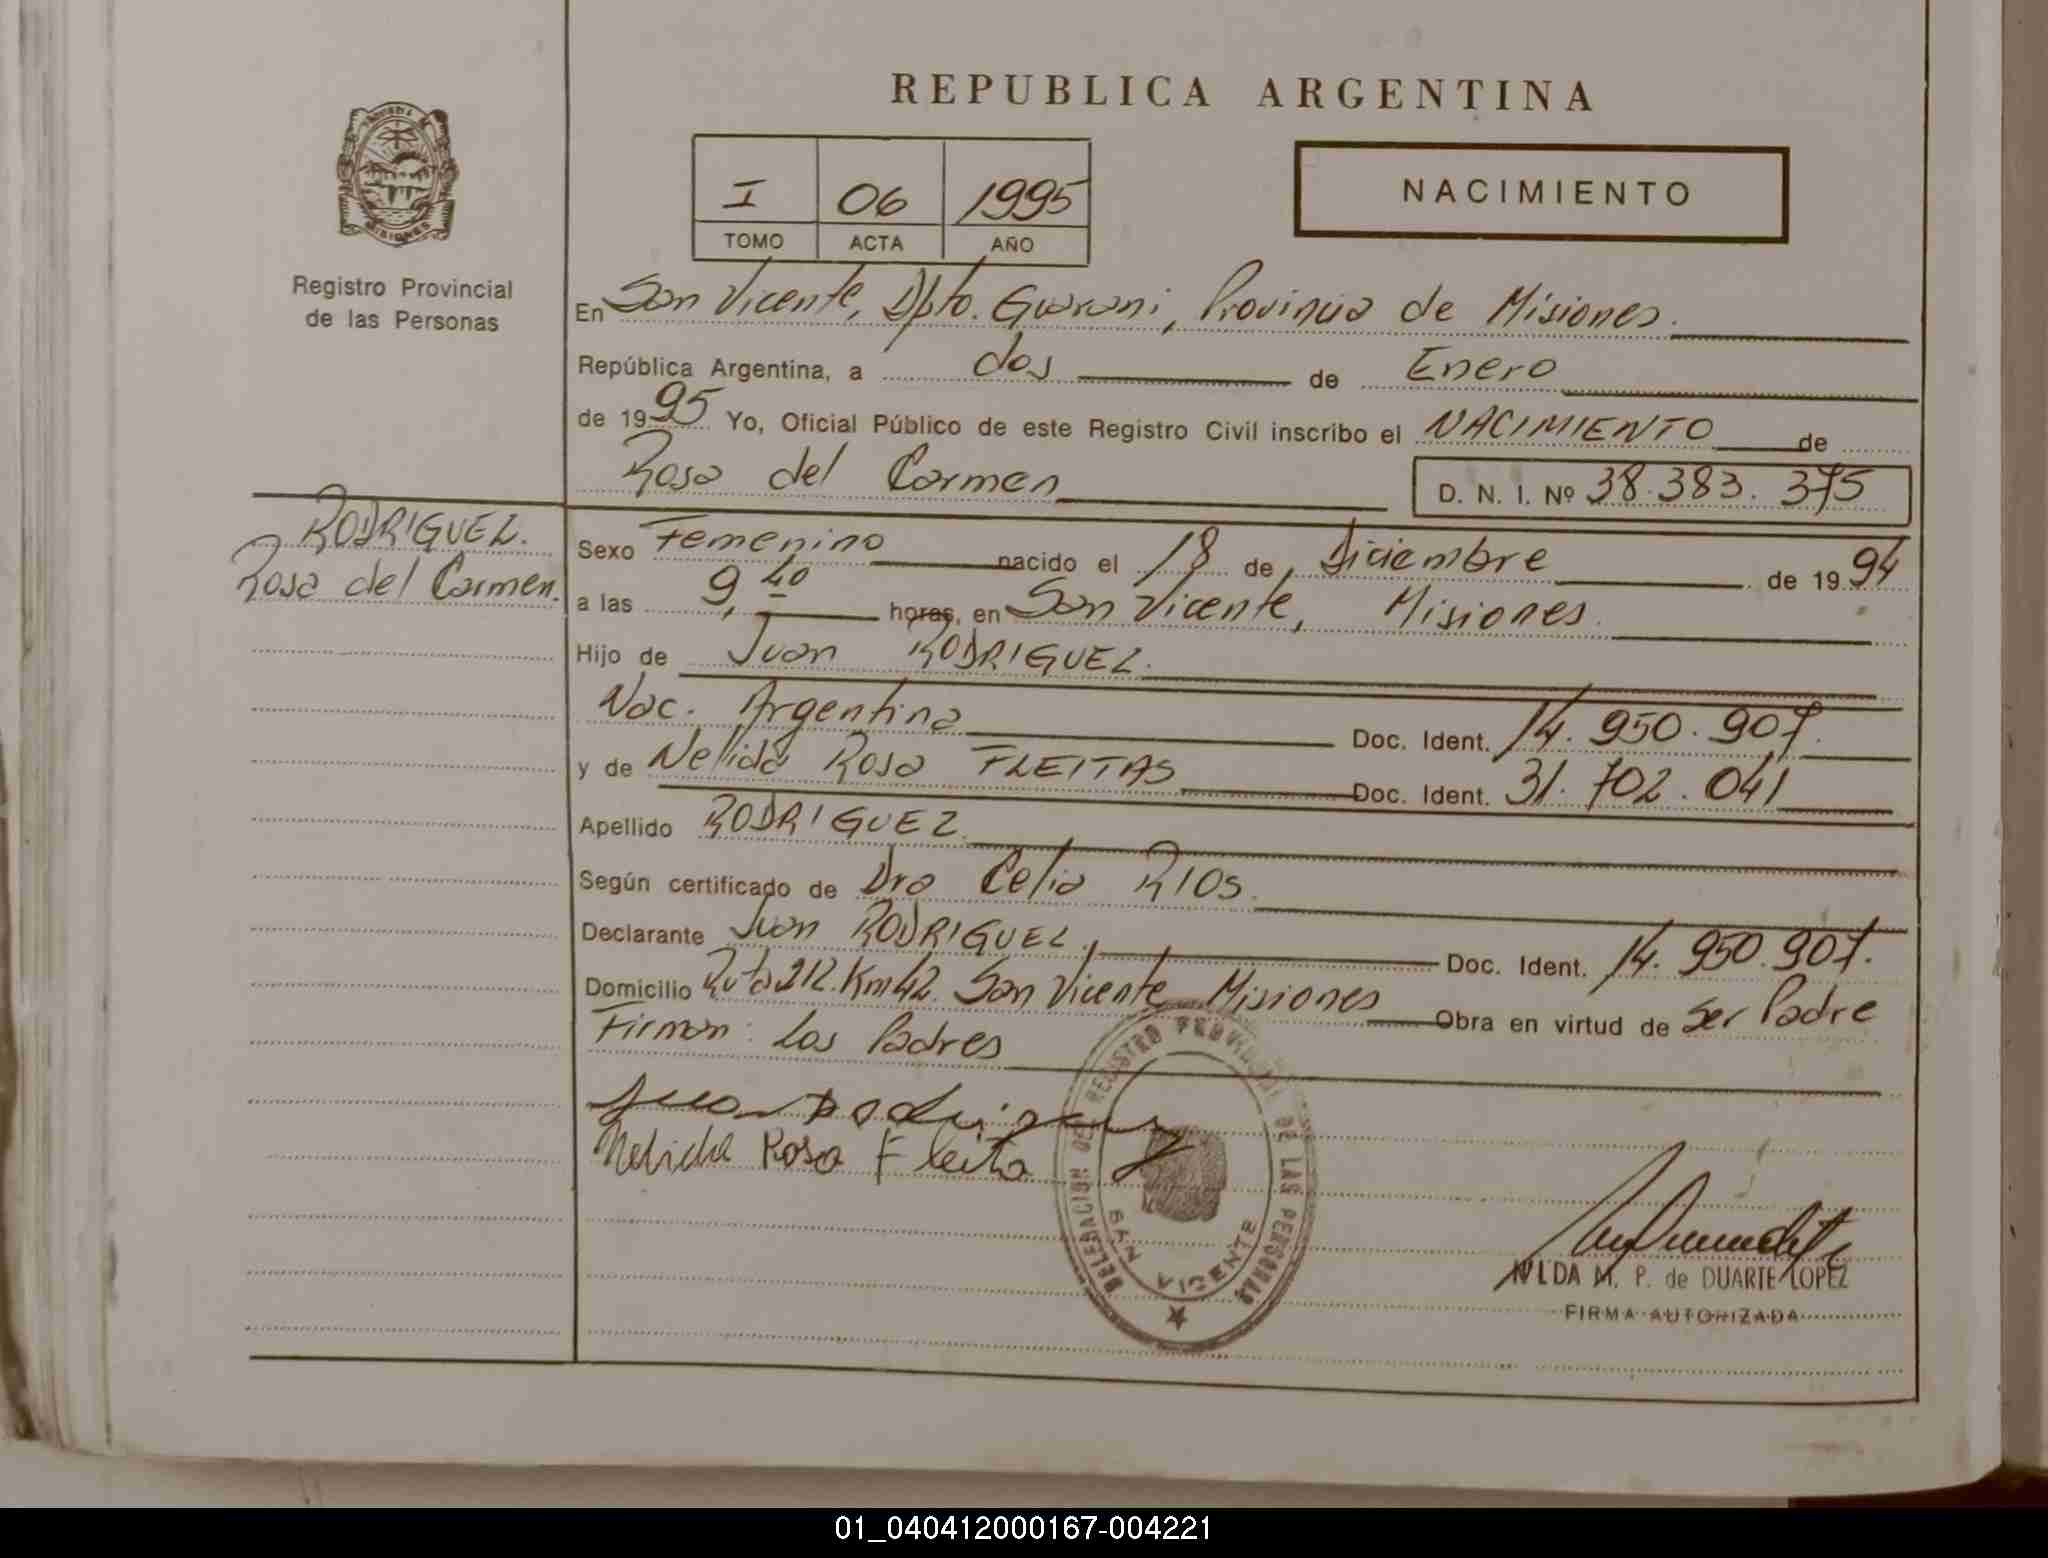 REPUBLICA ARGENTINA
I 06 1995
TOMO ACTA AÑO
NACIMIENTO
Registro Provincial
de las Personas
MISIONES
En San Vicente, Dpto. Guarani, Provincia de Misiones.
República Argentina, a dos de Enero
de 1995 Yo, Oficial Público de este Registro Civil inscribo el NACIMIENTO de
Rosa del Carmen D. N. I. Nº 38.383.375
RODRIGUEZ.
Rosa del Carmen.
Sexo Femenino nacido el 18 de Diciembre de 1994
a las 9,40 horas, en San Vicente, Misiones.
Hijo de Juan RODRIGUEZ.
Nac. Argentina Doc. Ident. 14.950.907.
y de Nelida Rosa FLEITAS Doc. Ident. 31.702.041
Apellido RODRIGUEZ.
Según certificado de Dra Celia RIOS.
Declarante Juan RODRIGUEZ, Doc. Ident. 14.950.907.
Domicilio Ruta 212. Km 42. San Vicente Misiones Obra en virtud de Ser Padre
Firman: Los Padres
Juan Rodriguez
Nelida Rosa Fleita
DELEGACION DEL REGISTRO PROVINCIAL DE LAS PERSONAS
SAN VICENTE
NILDA M. P. de DUARTE LOPEZ
FIRMA AUTORIZADA
01_040412000167-004221